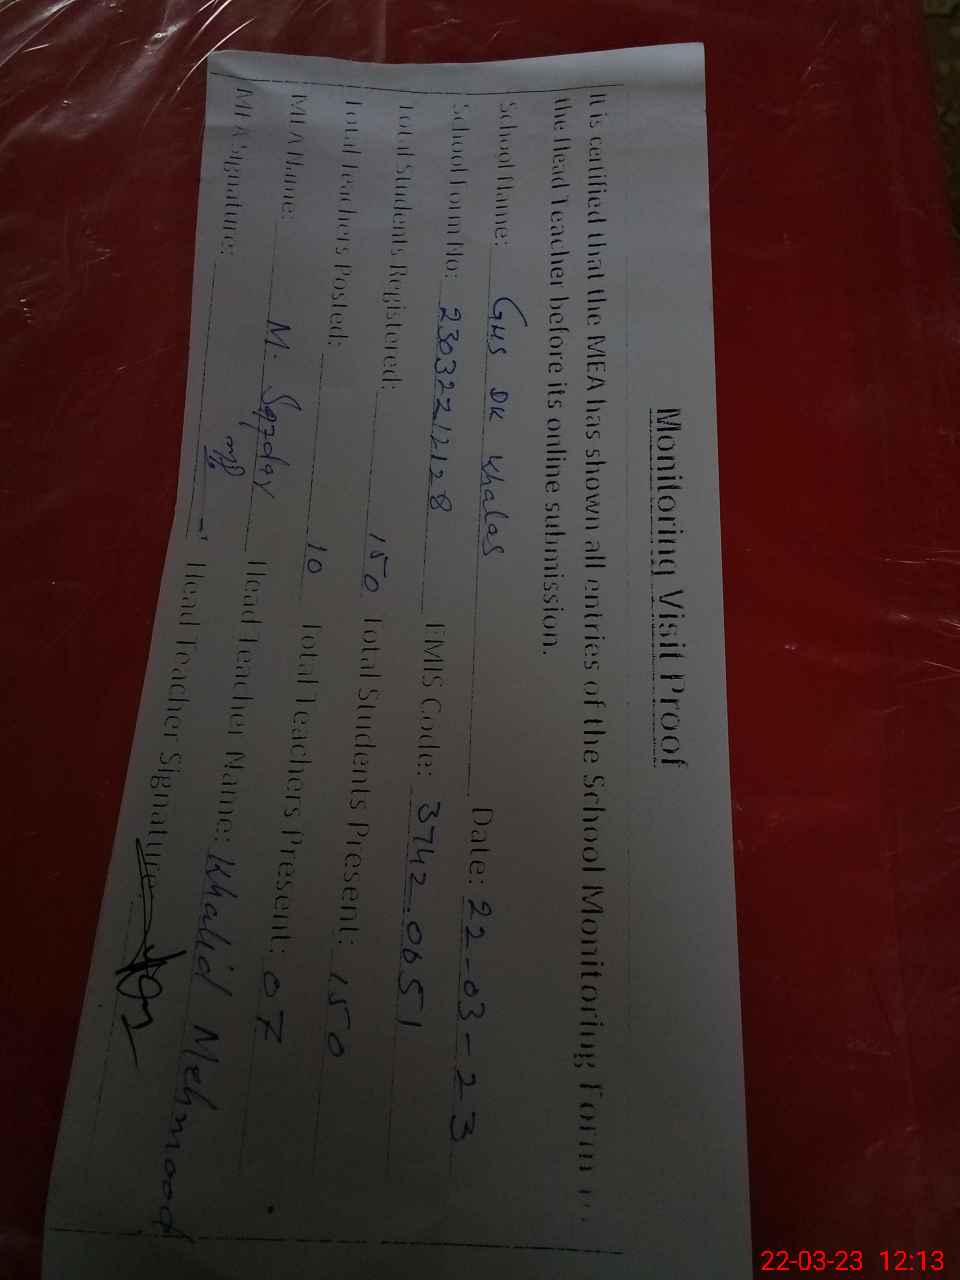 Monitoring Visit Proof
It is certified that the MEA has shown all entries of the School Monitoring Form to
the Head Teacher before its online submission.
School Name: GHS DK Khalas Date: 22-03-23
School Form No: EMIS Code: 3742 0651
Total Students Registered: 150 Total Students Present: 150
Total Teachers Posted: 10 Total Teachers Present: 07
MEA Name: M. Head Teacher Name: Khalid Mehmood
MEA Signature: Head Teacher Signature:
22-03-23 12:13